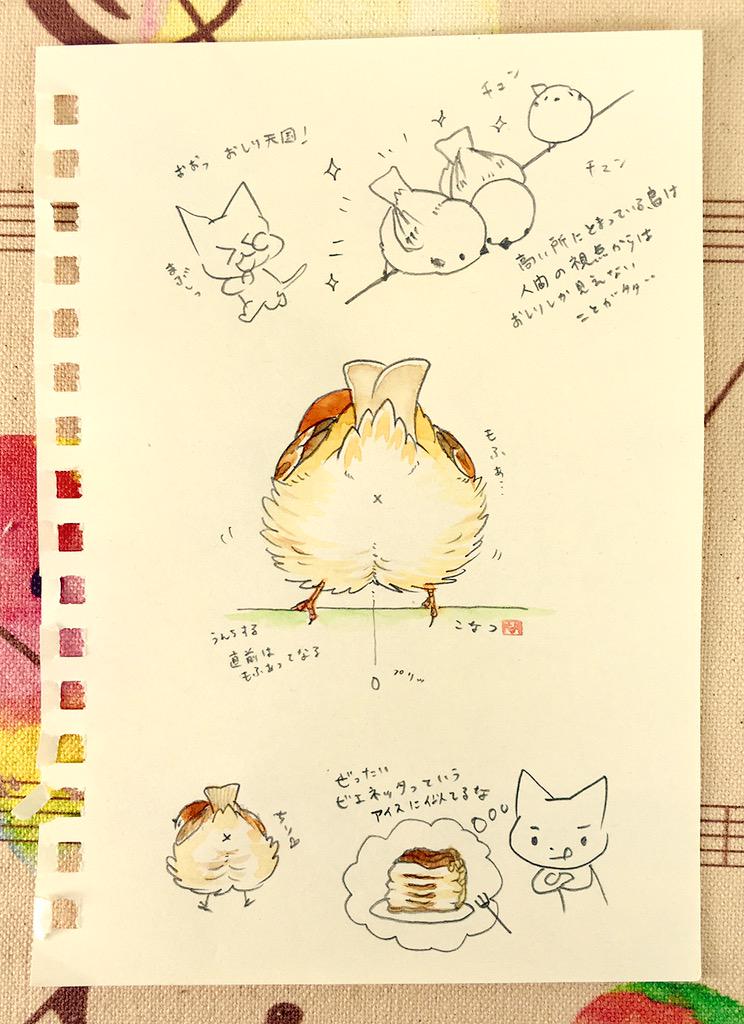 おおっ おしり天国!
まぶしっ
チュン
チュン
高い所にとまっている鳥は
人間の視点からは
おしりしか見えない
ことが多い…
もふぁ…
うんちする
直前は
もふあってなる
こなつ
プリッ
ぜったい
ビエネッタっていう
アイスに似てるな